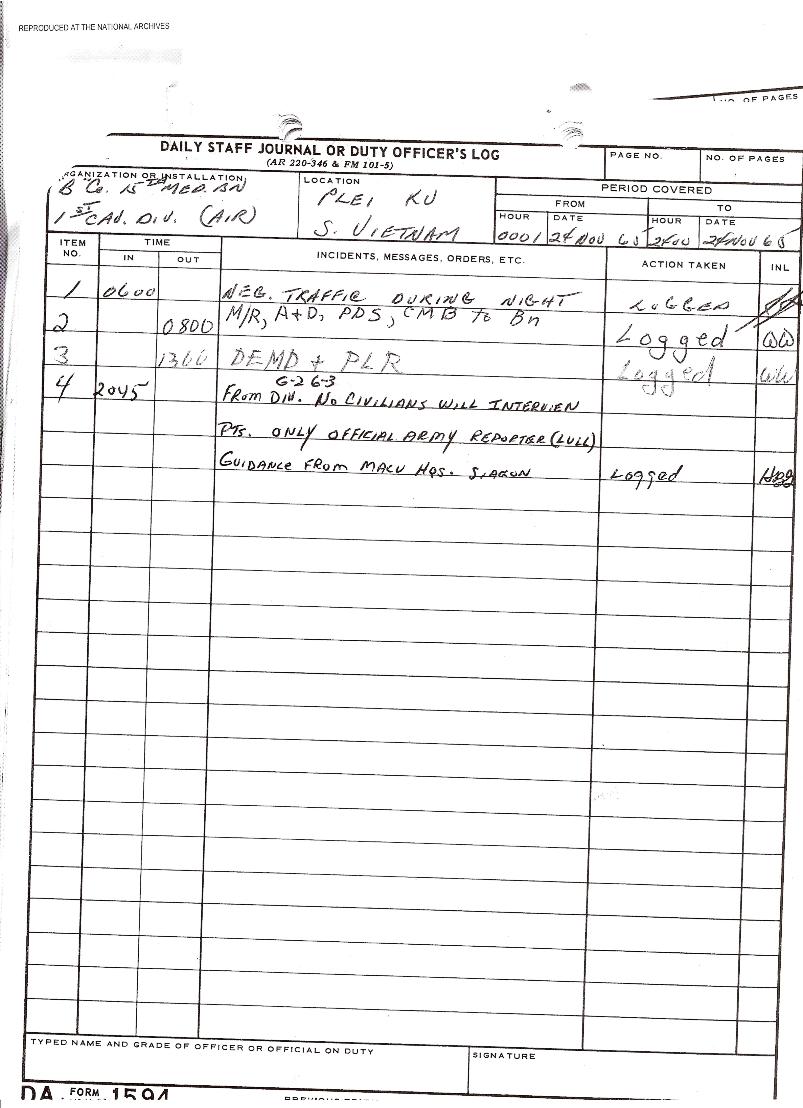 REPRODUCED AT THE NATIONAL ARCHIVES
NO. OF PAGES
DAILY STAFF JOURNAL OR DUTY OFFICER'S LOG
(AR 220-346 & FM 101-5)
PAGE NO.
NO. OF PAGES
RGANIZATION OR INSTALLATION
B Co. 15TH MED. BN
1ST CAV. DIV. (AIR)
LOCATION
PLEI KU
S. VIETNAM
PERIOD COVERED
FROM
TO
HOUR
DATE
HOUR
DATE
0001
24 NOV 65
2400
24 NOV 65
ITEM NO.
TIME
IN
OUT
INCIDENTS, MESSAGES, ORDERS, ETC.
ACTION TAKEN
INL
1 0600 NEG. TRAFFIC DURING NIGHT LOGGED
2 0800 M/R, A+D, PDS, CMB To Bn Logged WW
3 1300 DEMD + PLR Logged WW
4 2045 G-2 G-3
FROM DIV. NO CIVILIANS WILL INTERVIEN
PTS. ONLY OFFICIAL ARMY REPORTER (LULL)
GUIDANCE FROM MACV HQS. SIAGON Logged
TYPED NAME AND GRADE OF OFFICER OR OFFICIAL ON DUTY
SIGNATURE
DA FORM 1594